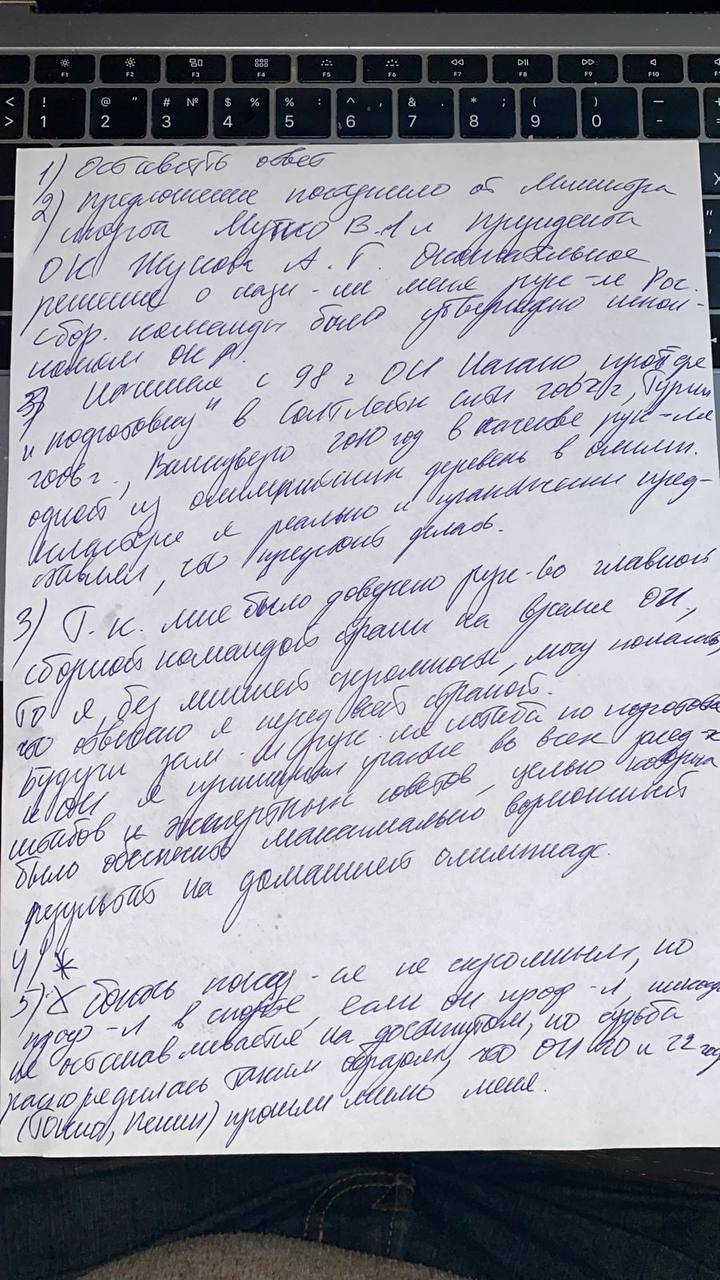 F1 F2 F3 F4 F5 F6 F7 F8 F9 F10
< > ! 1 @ " 2 # № 3 $ % 4 % : 5 ^ , 6 & . 7 * ; 8 ( 9 ) 0 — -
1) Оставить ответ
2) предложение поступило от Министра
спорта Мутко В.Л и президента
ОК Жукова А. Г. Окончательное
решение о назн-ии меня рук-ле Рос.
сбор. команды было утверждено испол-
комом ОКР.
3) Начиная с 98 г ОИ Нагано, пройдя
"подготовку" в Солтлейк сити 2002 г, Турин
2006 г., Ванкувер 2010 год в качестве рук-ля
одной из олимпийских деревень в олимп.
кластере я реально и прагматично пред-
ставлял, что предстоит делать.
3) Т.к. мне было доверено рук-во главной
сборной командой страны на время ОИ,
то я, без лишней скромности, могу полагать,
что отвечаю я перед всей страной.
Будучи зам. рук-ля штаба по подготовке
к ОИ я принимал участие во всех засед-х
штабов и экспертных советов, целью которых
было обеспечить максимально возможный
результат на домашней олимпиаде.
4) *
5) Боюсь показ-ся не скромным, но
проф-л в спорте, если он проф-л никогда
не останавливается на достигнутом, но судьба
распорядилась таким образом, что ОИ 20 и 22 год
(Токио, Пекин) прошли мимо меня.